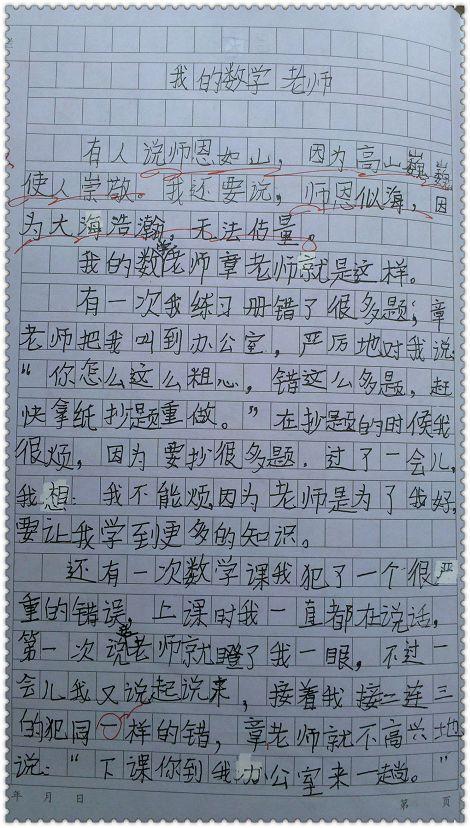 我的数学老师
有人说师恩如山，因为高山巍巍，
使人崇敬。我还要说，师恩似海，因
为大海浩瀚，无法估量。
我的数学老师章老师就是这样。
有一次我练习册错了很多题，章
老师把我叫到办公室，严厉地对我说：
“你怎么这么粗心，错这么多题，赶
快拿纸抄题重做。”在抄题的时候我
很烦，因为要抄很多题，过了一会儿，
我想：我不能烦，因为老师是为了我好，
要让我学到更多的知识。
还有一次数学课我犯了一个很严
重的错误，上课时我一直都在说话，
第一次章老师就瞪了我一眼，不过一
会儿我又说起说来，接着我接二连三
的犯同一样的错，章老师就不高兴地
说：“下课你到我办公室来一趟。”
年 月 日
第 页